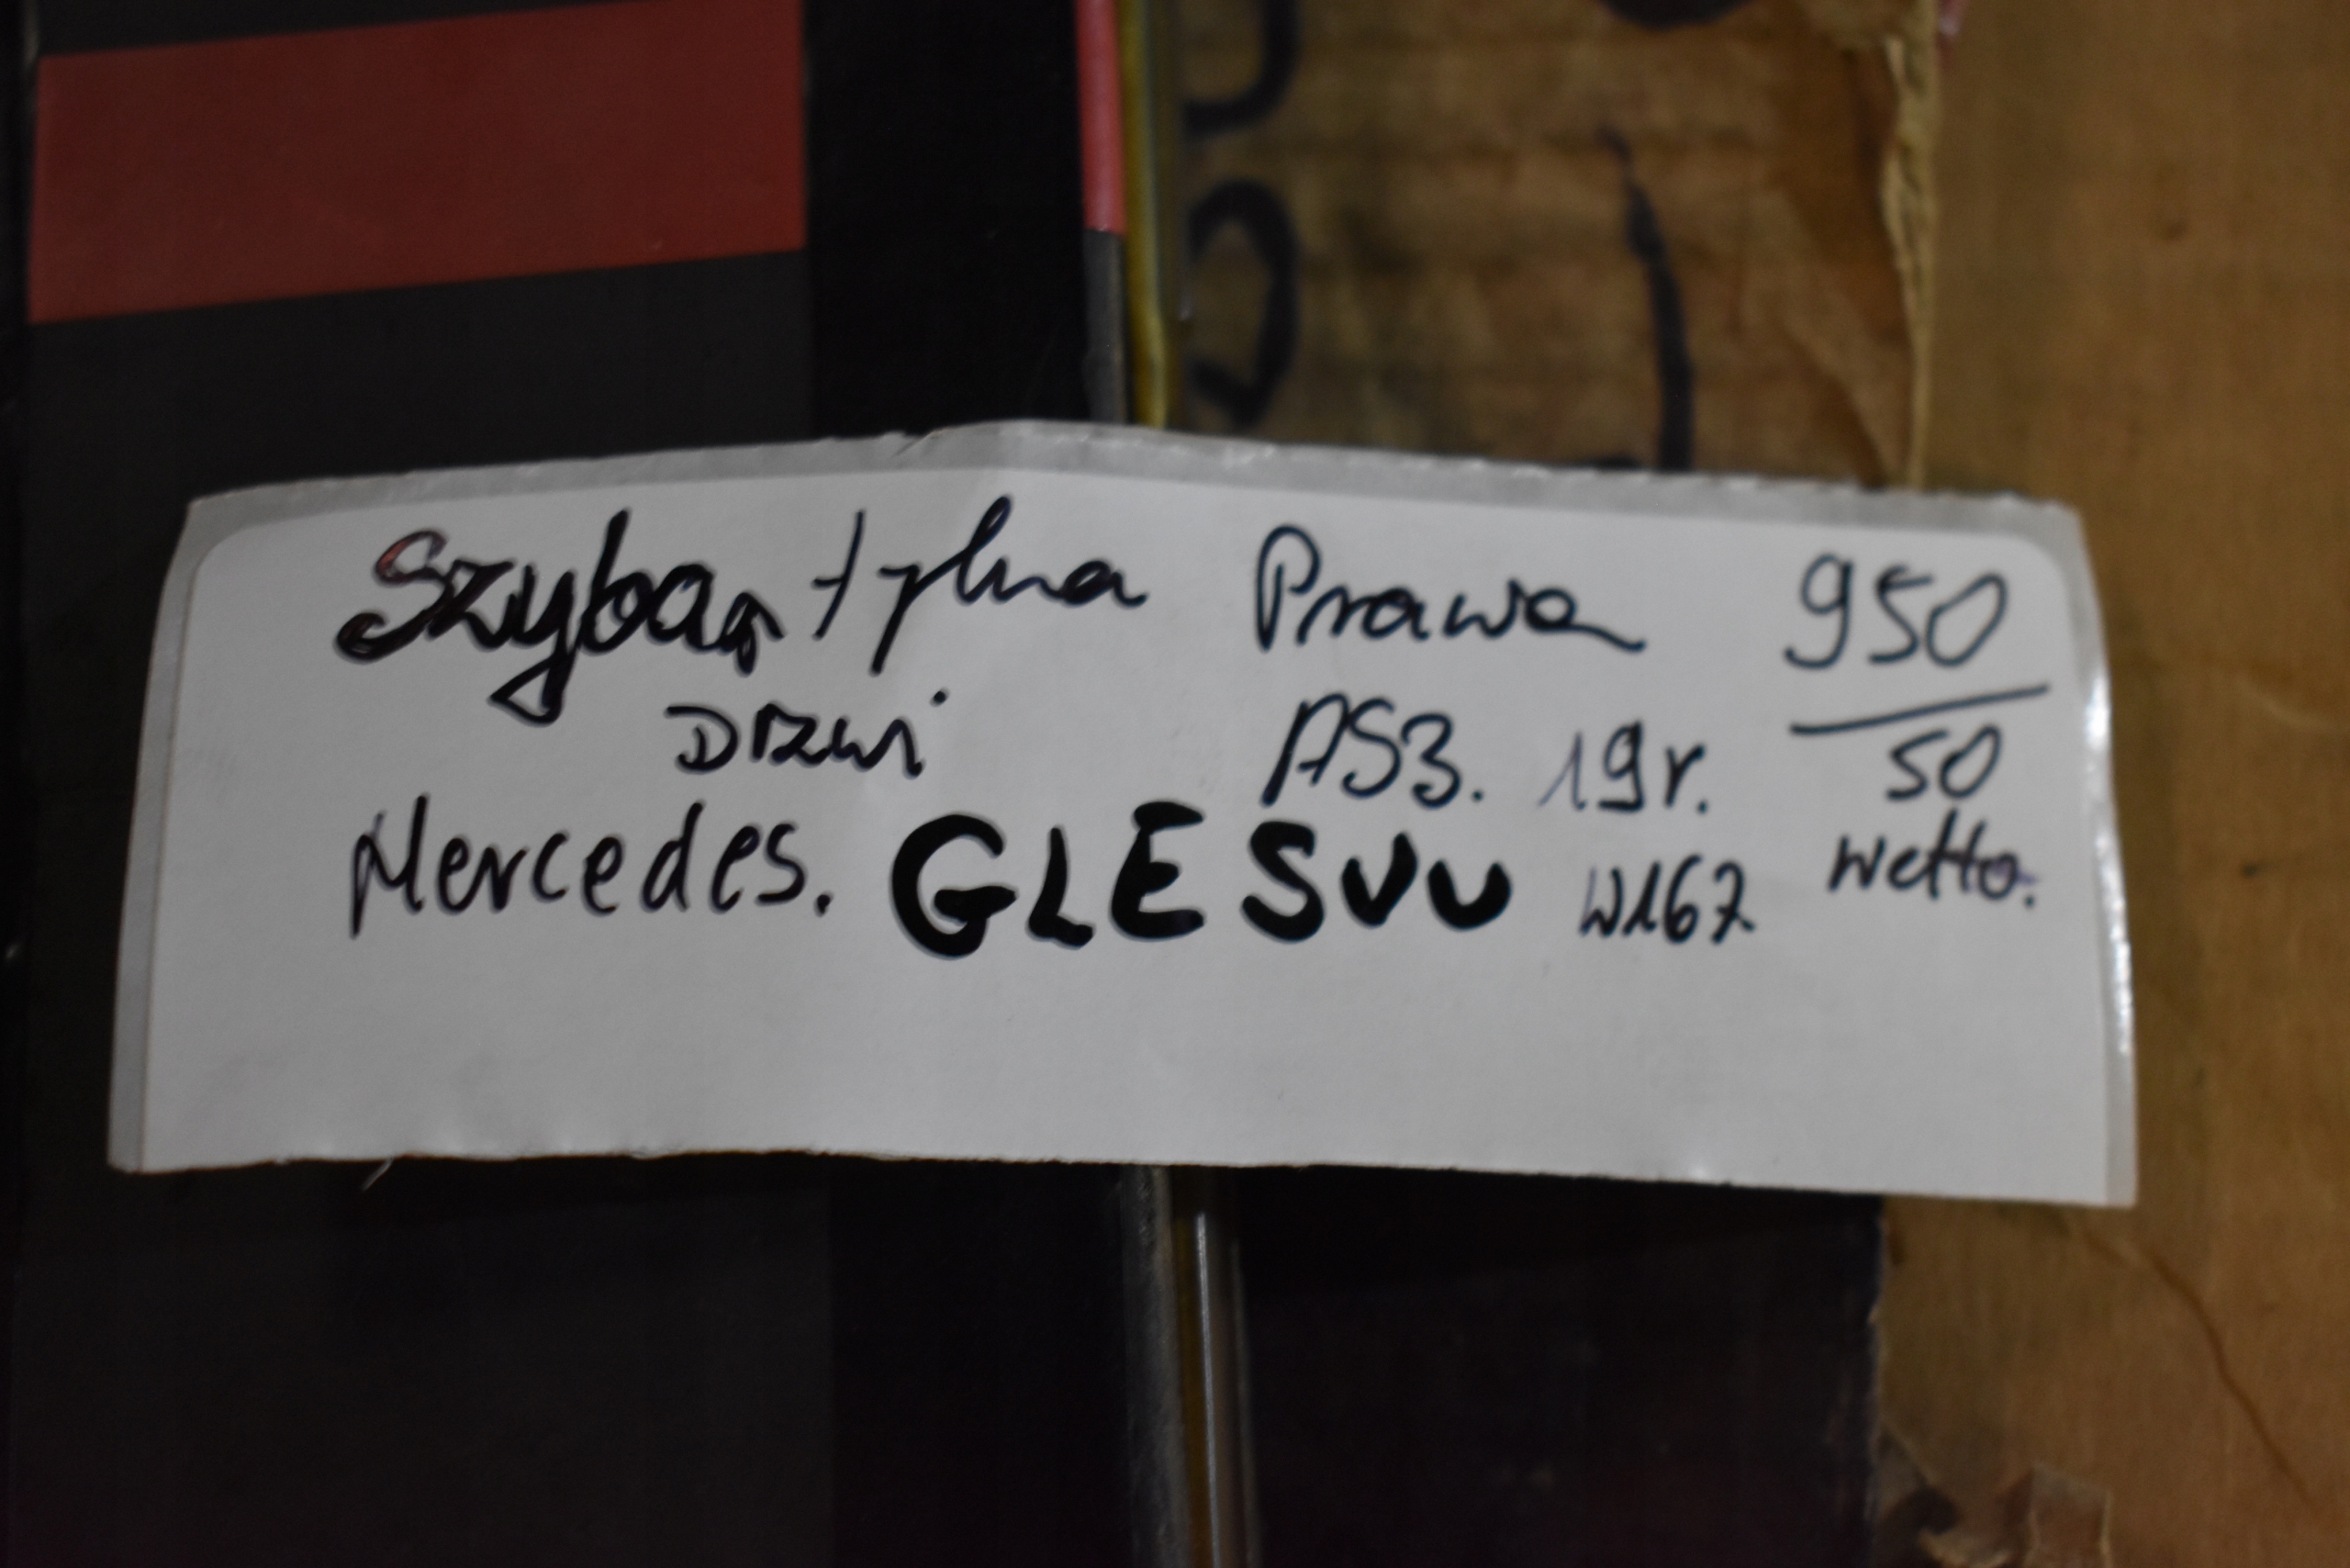 Szyba tylna Prawa 950
Drzwi AS3. 19r. 50
Mercedes. GLE SUV W167 netto.